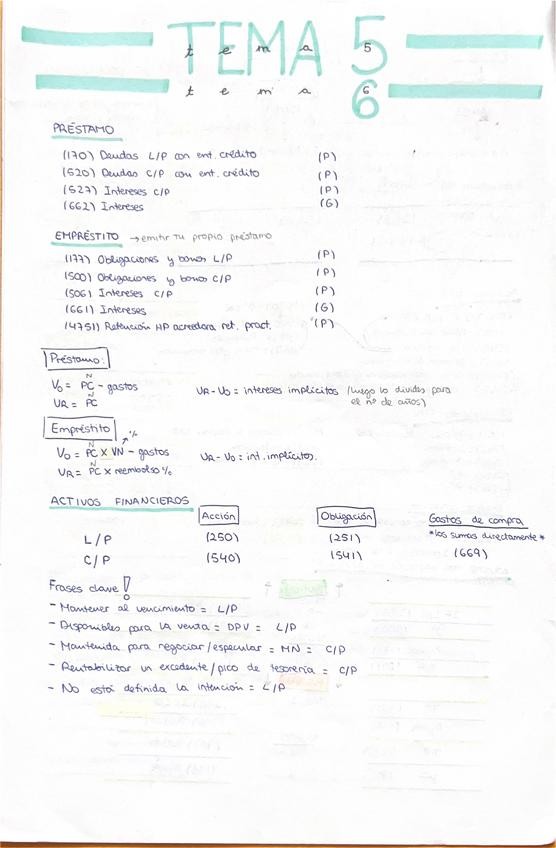 TEMA 5
tema 5
6
tema 6
PRÉSTAMO
(170) Deudas L/P con ent. crédito (P)
(520) Deudas C/P con ent. crédito (P)
(527) Intereses C/P (P)
(662) Intereses (G)
EMPRÉSTITO → emitir tu propio préstamo
(177) Obligaciones y bonos L/P (P)
(500) Obligaciones y bonos C/P (P)
(506) Intereses C/P (P)
(661) Intereses (G)
(4751) Retención HP acreedora ret. pract. (P)
Préstamo:
N
V0 = PC - gastos
VR - V0 = intereses implícitos (luego lo divides para el nº de años)
N
VR = PC
Empréstito
N %
V0 = PC x VN - gastos
VR - V0 = int. implícitos.
N
VR = PC x reembolso %
ACTIVOS FINANCIEROS
Acción Obligación Gastos de compra
*los sumas directamente*
L/P (250) (251)
C/P (540) (541) (669)
Frases clave!
- Mantener al vencimiento = L/P
- Disponibles para la venta = DPV = L/P
- Mantenida para negociar/especular = MN = C/P
- Rentabilizar un excedente/pico de tesorería = C/P
- No está definida la intención = L/P